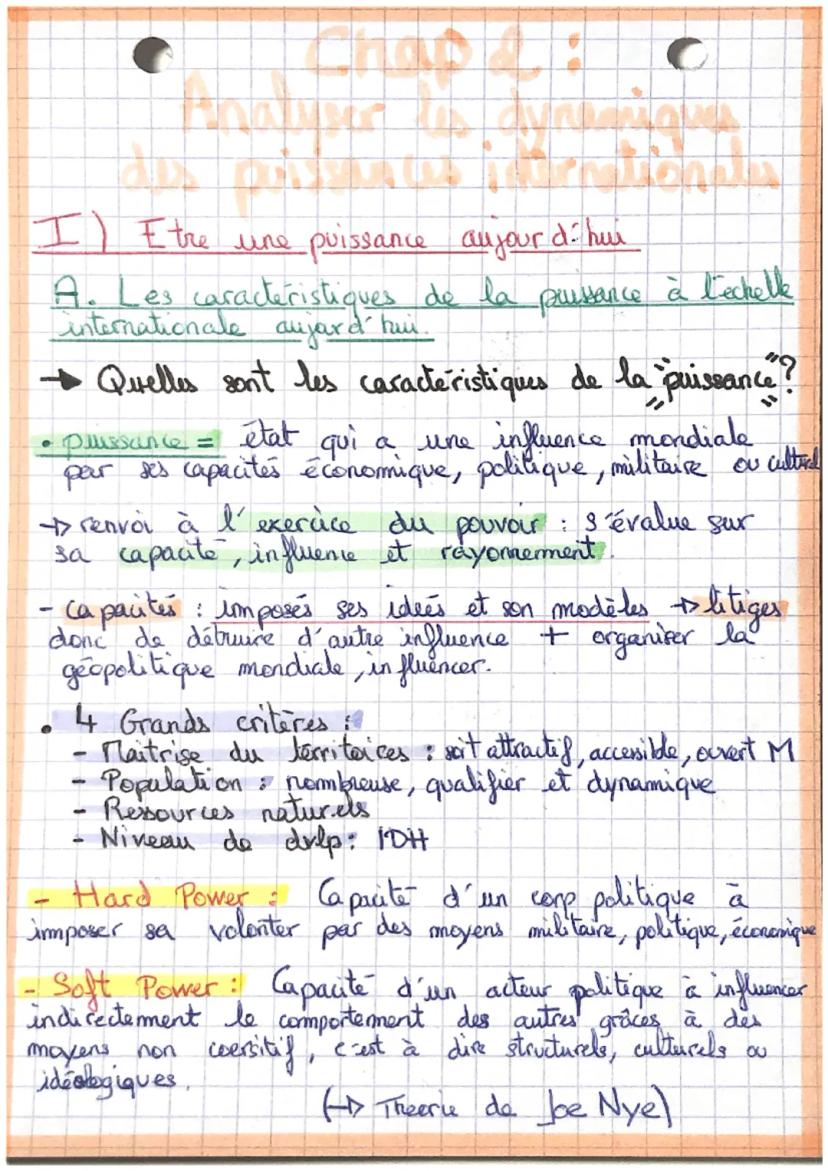 Chap 2 :
Analyser les dynamiques
des puissances internationales
I) Etre une puissance aujourd'hui
A. Les caractéristiques de la puissance à l'échelle
internationale aujourd'hui.
→ Quelles sont les caractéristiques de la "puissance" ?
• puissance = état qui a une influence mondiale
par ses capacités économique, politique, militaire ou culturel
↪ renvoi à l'exercice du pouvoir : s'évalue sur
sa capacité, influence et rayonnement.
- capacités : imposés ses ideés et son modèles ↪ litiges
donc de détruire d'autre influence + organiser la
géopolitique mondiale, influencer.
• 4 Grands critères :
- Maitrise du territoires : soit attractif, accessible, ouvert M
- Population : nombreuse, qualifier et dynamique
- Ressources naturels
- Niveau de dvlp : IDH
- Hard Power : Capacité d'un corp politique à
imposer sa volonter par des moyens militaire, politique, économique
- Soft Power : Capacité d'un acteur politique à influencer
indirectement le comportement des autres grâces à des
moyens non coersitif, c'est à dire structurels, culturels ou
idéologiques.
(↪ Theorie de Joe Nye)